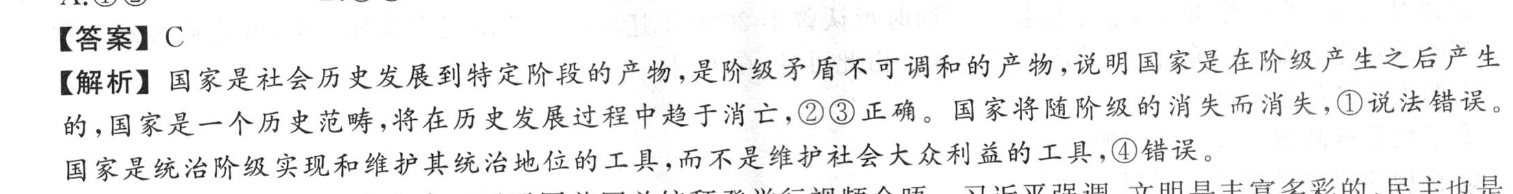 A.①②
【答案】C
【解析】国家是社会历史发展到特定阶段的产物,是阶级矛盾不可调和的产物,说明国家是在阶级产生之后产生
的,国家是一个历史范畴,将在历史发展过程中趋于消亡,②③正确。国家将随阶级的消失而消失,①说法错误。
国家是统治阶级实现和维护其统治地位的工具,而不是维护社会大众利益的工具,④错误。
举行视频会晤。习近平强调,文明是丰富多彩的,民主也是